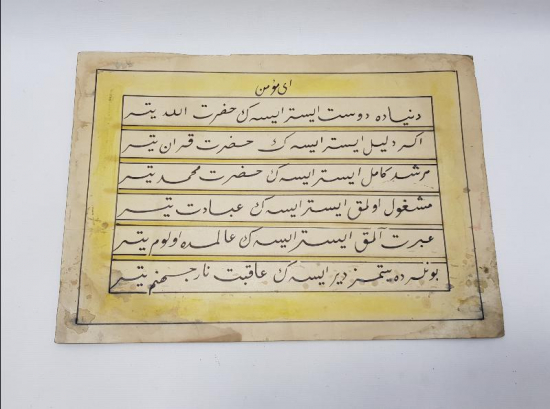 ای مؤمن
دنیاده دوست ایستر ایسه ڭ حضرت الله یتر
اكر دلیل ایستر ایسه ڭ حضرت قرآن یتر
مرشد كامل ایستر ایسه ڭ حضرت محمد یتر
مشغول اولمق ایستر ایسه ڭ عبادت یتر
عبرت آلمق ایستر ایسه ڭ عالمده اولوم یتر
بونلرده یتمز دیر ایسه ڭ عاقبت نار جهنم یتر